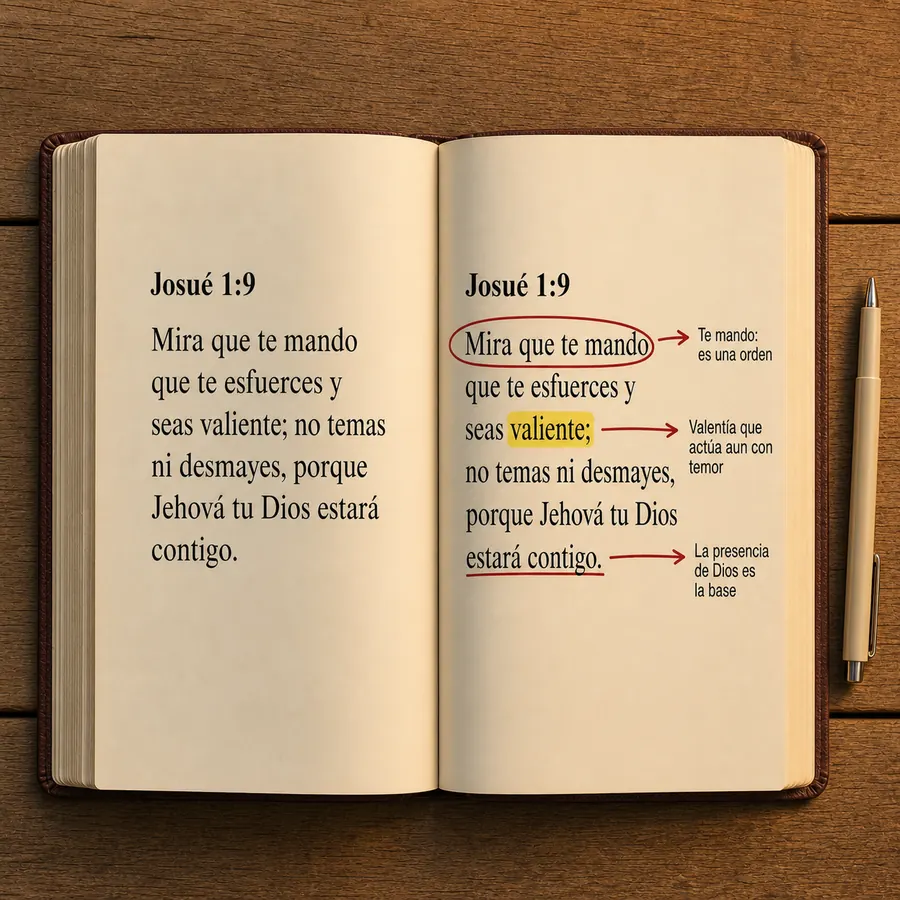 Josué 1:9
Mira que te mando
que te esfuerces y
seas valiente; no temas
ni desmayes, porque
Jehová tu Dios estará
contigo.
Josué 1:9
Mira que te mando
que te esfuerces y
seas valiente;
no temas ni desmayes,
porque Jehová tu Dios
estará contigo.
Te mando:
es una orden
Valentía que
actúa aun con
temor
La presencia
de Dios es
la base